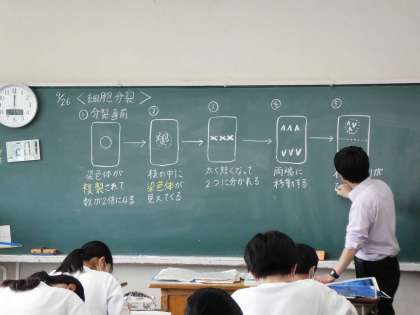 9/26 <細胞分裂>
① 分裂直前
②
③
④
⑤
染色体が
複製されて
数が2倍になる
核の中に
染色体が
見えてくる
太く短くなって
2つに分かれる
両端に
移動する